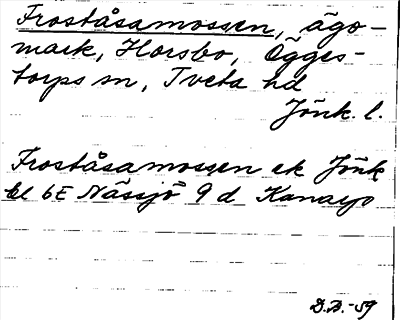 Froståsamossen, ägo-
mark, Horsbo, Ögges-
torps sn, Tveta hd
Jönk. l.
Froståsamossen ek Jönk
bl 6E Nässjö 9 d Kanarjo
D.B.-59